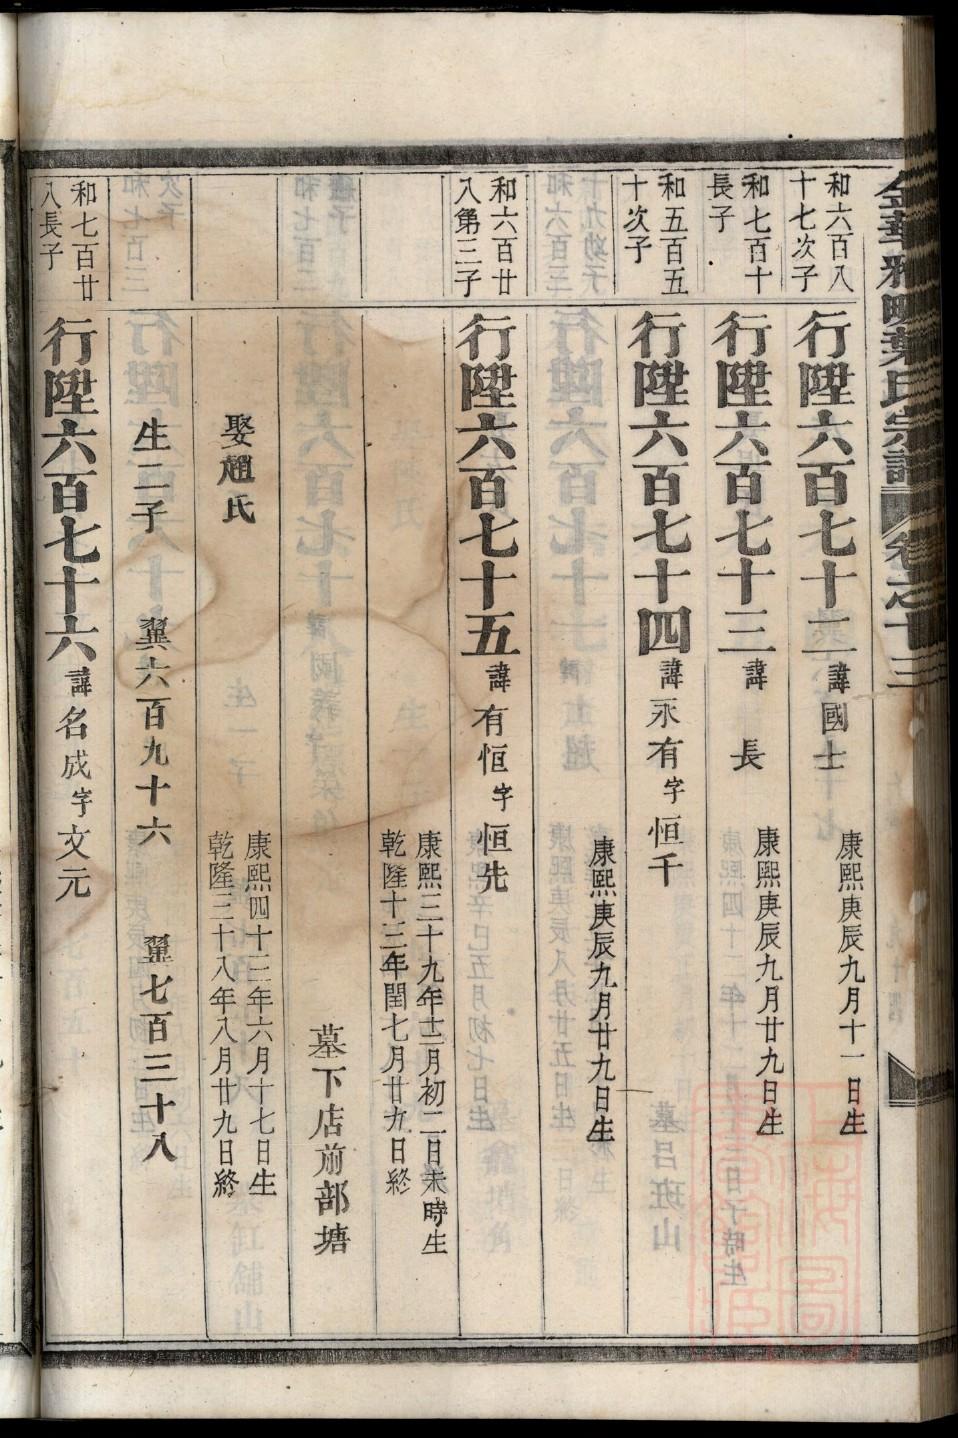 和六百八
十七次子
行陞六百七十二諱國士
康熙庚辰九月十一日生
和七百十
長子
行陞六百七十三諱 長
康熙庚辰九月廿九日生
和五百五
十次子
行陞六百七十四諱永有字恒千
康熙庚辰九月廿九日生
和六百廿
八第三子
行陞六百七十五諱有恒字恒先
康熙三十九年十二月初二日未時生
乾隆十三年閏七月廿九日終
墓下店前部塘
娶趙氏
康熙四十三年六月十七日生
乾隆三十八年八月廿九日終
生二子 翼六百九十六 翼七百三十八
和七百廿
八長子
行陞六百七十六諱名成字文元